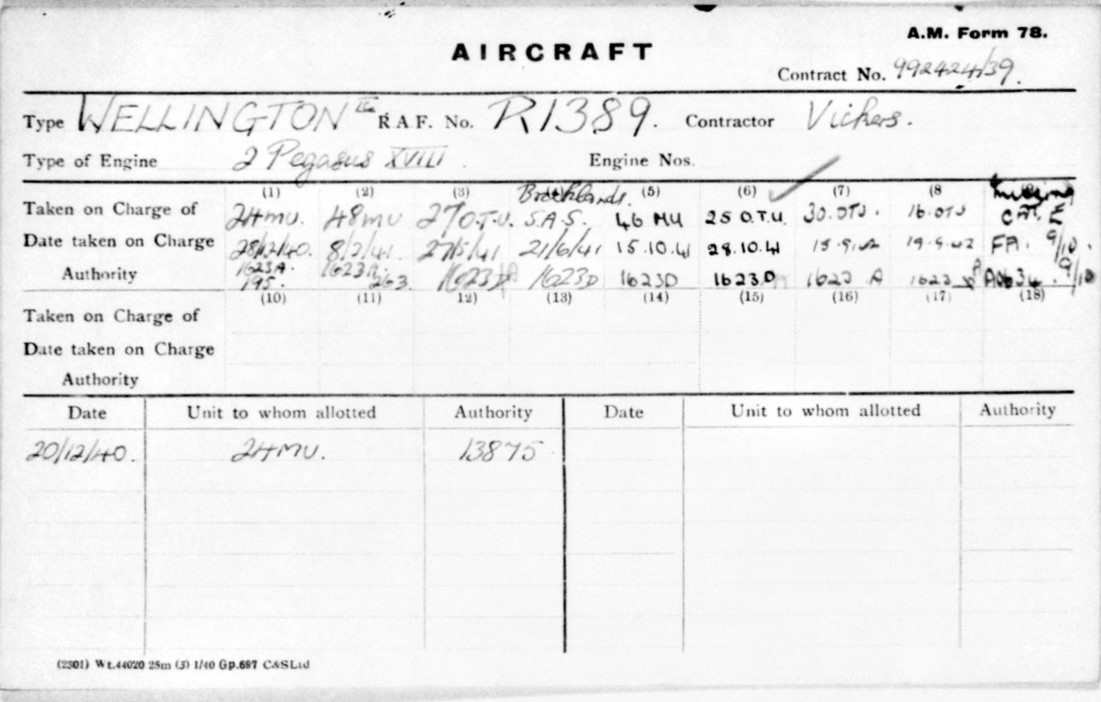 A.M. Form 78.
AIRCRAFT
Contract No. 992424/39.
Type WELLINGTON R.A.F. No. R1389. Contractor Vickers.
Type of Engine 2 Pegasus XVIII. Engine Nos.
(1) (2) (3) Brooklands. (5) (6) (7) (8
Taken on Charge of 24MU. 48MU 27O.T.U. S.A.S. 46 MU 25 O.T.U. 30.OTU. 16.OTU Missing CAT. E
Date taken on Charge 28/12/40. 8/2/41. 27/5/41 21/6/41 15.10.41 28.10.41 15.9.42 19.9.42 FA. 9/10.
Authority 1623A. 195. 263 1623D 1623D 1623D 1623 A 1623 9/10
(10) (11) 12) (13) (14) (15) (16) (17) (18)
Taken on Charge of
Date taken on Charge
Authority
Date Unit to whom allotted Authority Date Unit to whom allotted Authority
20/12/40. 24MU. 13875
(2301) Wt.44020 25m (3) 1/40 Gp.697 C&SLtd